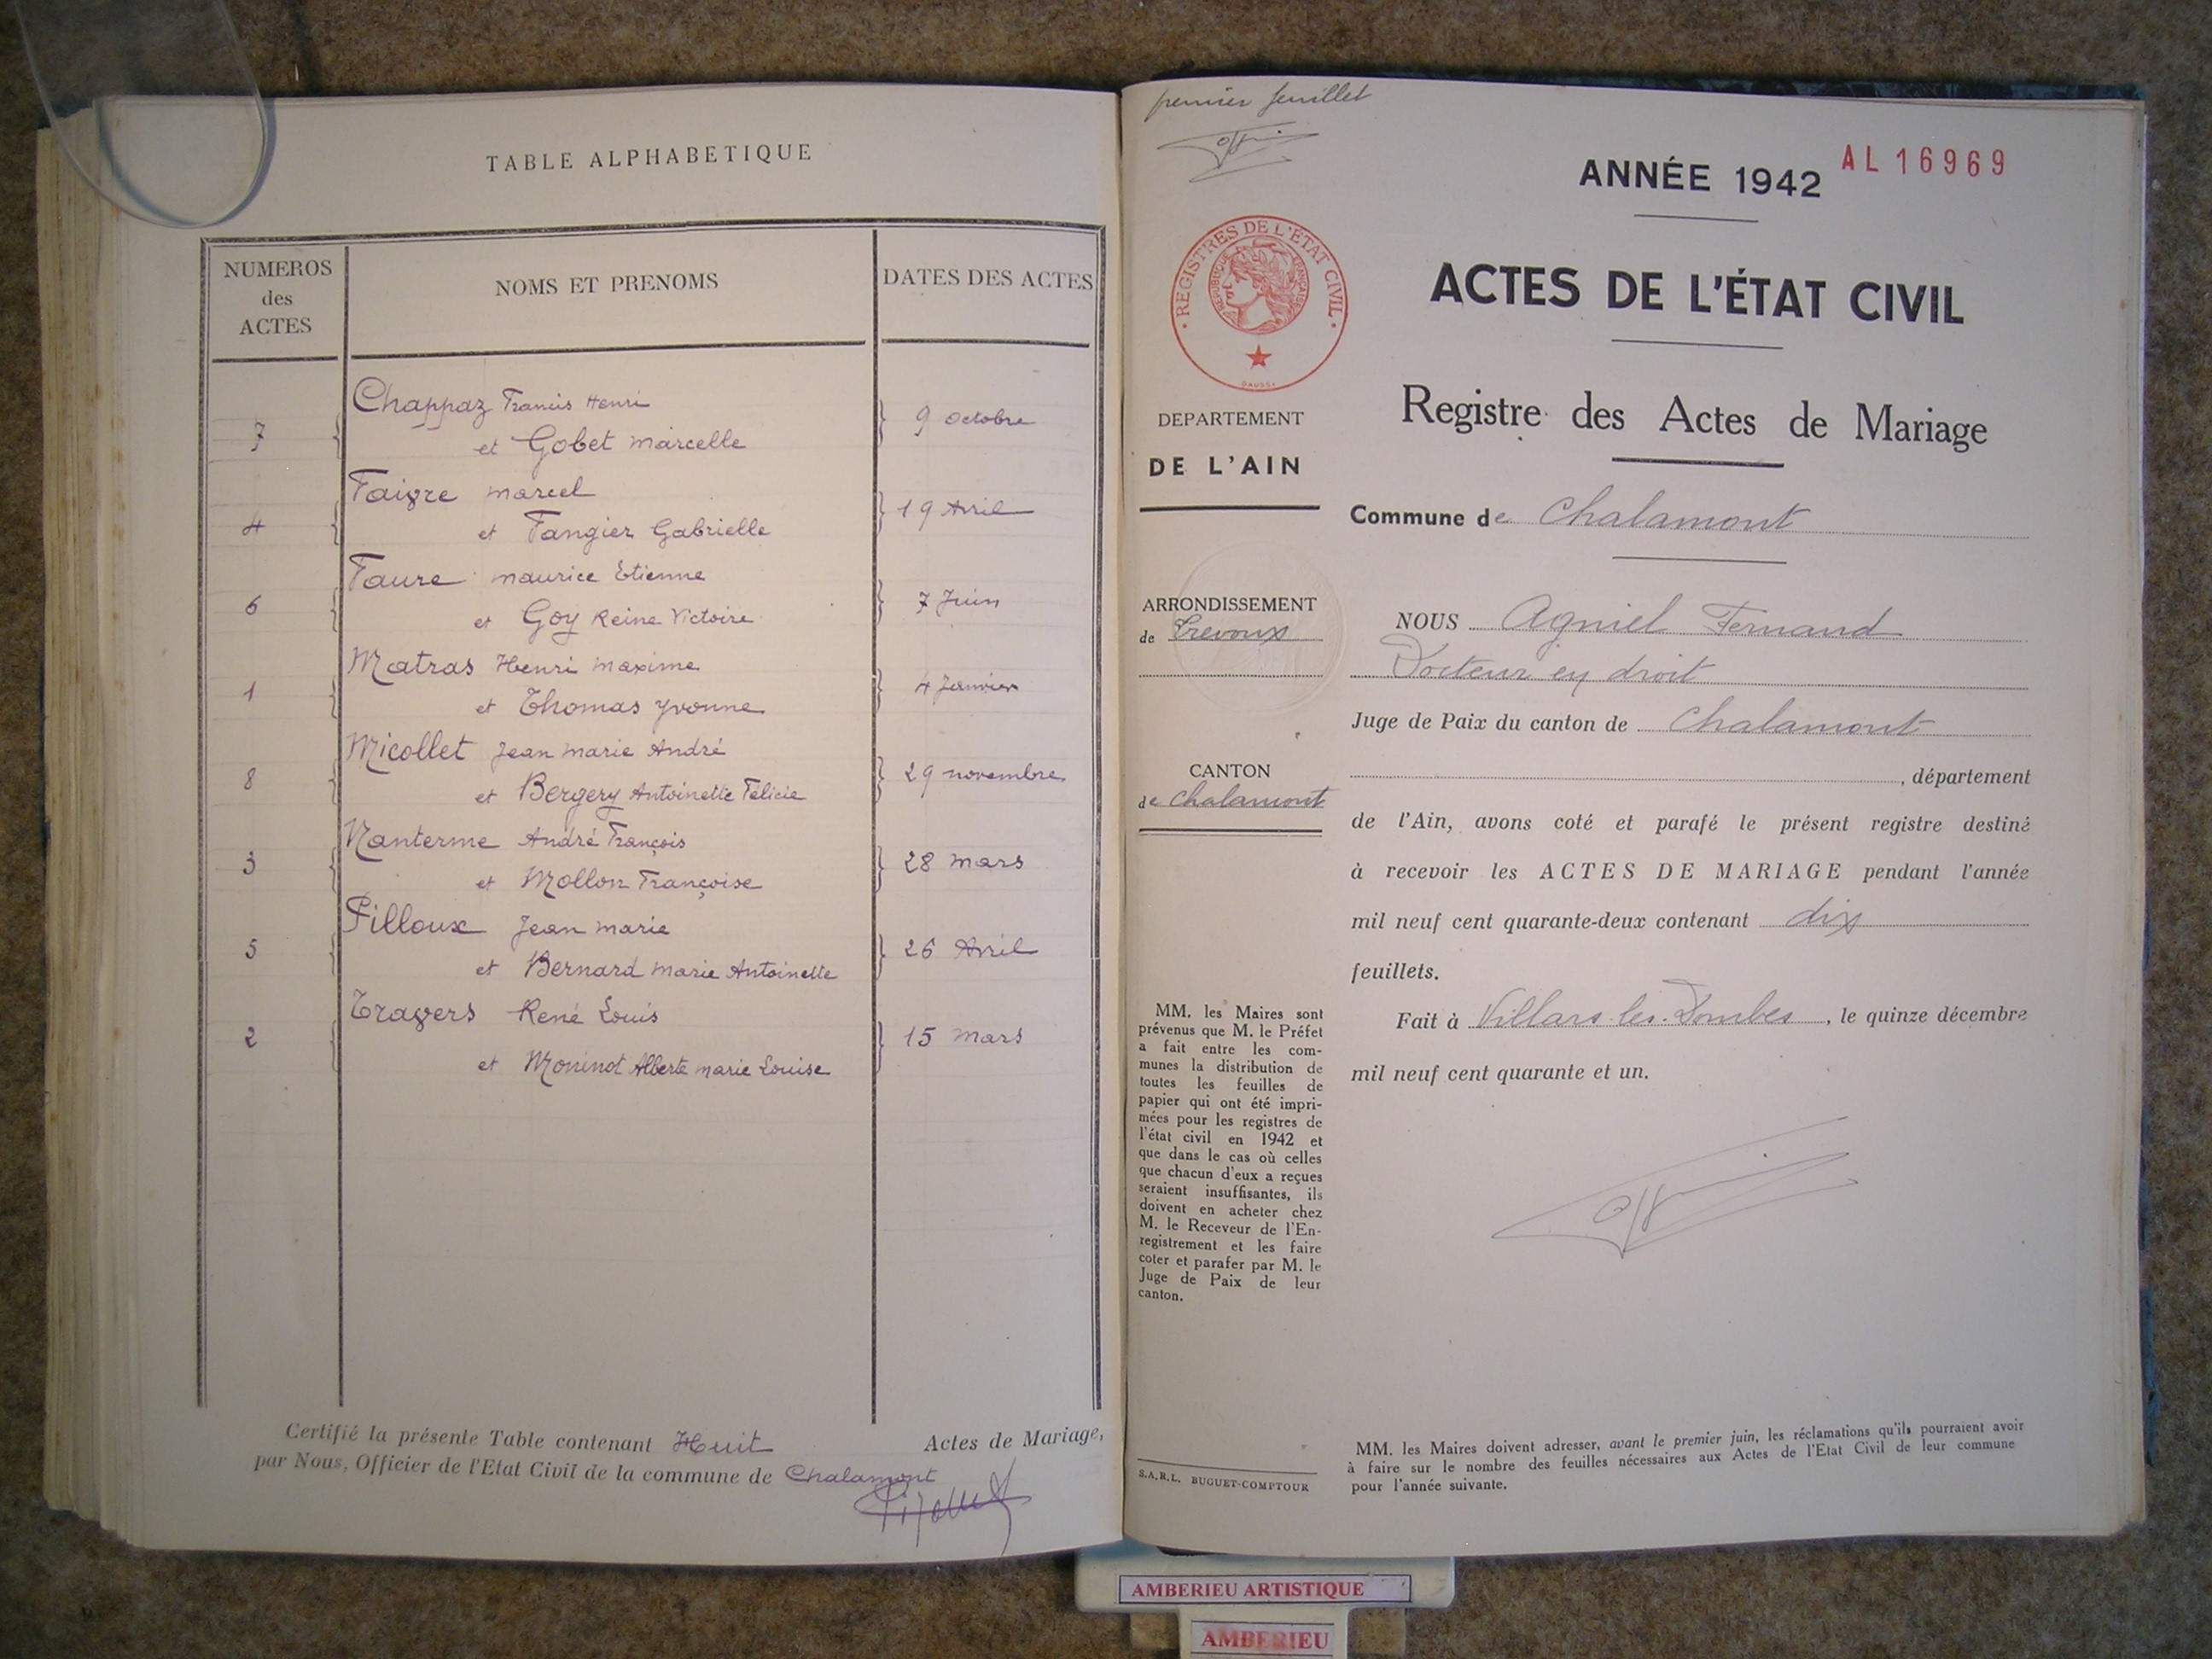 TABLE ALPHABETIQUE
NUMEROS
des
ACTES
NOMS ET PRENOMS
DATES DES ACTES
7
Chappaz Francis Henri
et Gobet Marcelle
9 Octobre
4
Faivre Marcel
et Fangier Gabrielle
19 Avril
6
Faure Maurice Etienne
et Goy Reine Victoire
7 Juin
1
Matras Henri Maxime
et Thomas Yvonne
4 Janvier
8
Micollet Jean Marie André
et Bergery Antoinette Félicie
29 Novembre
3
Nanterme André François
et Mollon Françoise
28 Mars
5
Pilloux Jean Marie
et Bernard Marie Antoinette
26 Avril
2
Travers René Louis
et Moninot Alberte Marie Louise
15 Mars
Certifié la présente Table contenant Huit Actes de Mariage,
par Nous, Officier de l'Etat Civil de la commune de Chalamont
premier feuillet
ANNÉE 1942
AL 16969
REGISTRES DE L'ÉTAT CIVIL
RÉPUBLIQUE FRANÇAISE
ACTES DE L'ÉTAT CIVIL
Registre des Actes de Mariage
DEPARTEMENT
DE L'AIN
Commune de Chalamont
ARRONDISSEMENT
de Trevoux
CANTON
de Chalamont
NOUS Agniel Fernand
Docteur en droit
Juge de Paix du canton de Chalamont
, département
de l'Ain, avons coté et parafé le présent registre destiné
à recevoir les ACTES DE MARIAGE pendant l'année
mil neuf cent quarante-deux contenant dix
feuillets.
Fait à Villars-les-Dombes, le quinze décembre
mil neuf cent quarante et un.
MM. les Maires sont
prévenus que M. le Préfet
a fait entre les com-
munes la distribution de
toutes les feuilles de
papier qui ont été impri-
mées pour les registres de
l'état civil en 1942 et
que dans le cas où celles
que chacun d'eux a reçues
seraient insuffisantes, ils
doivent en acheter chez
M. le Receveur de l'En-
registrement et les faire
coter et parafer par M. le
Juge de Paix de leur
canton.
S.A.R.L. BUGUET-COMPTOUR
MM. les Maires doivent adresser, avant le premier juin, les réclamations qu'ils pourraient avoir
à faire sur le nombre des feuilles nécessaires aux Actes de l'Etat Civil de leur commune
pour l'année suivante.
AMBERIEU ARTISTIQUE
AMBERIEU